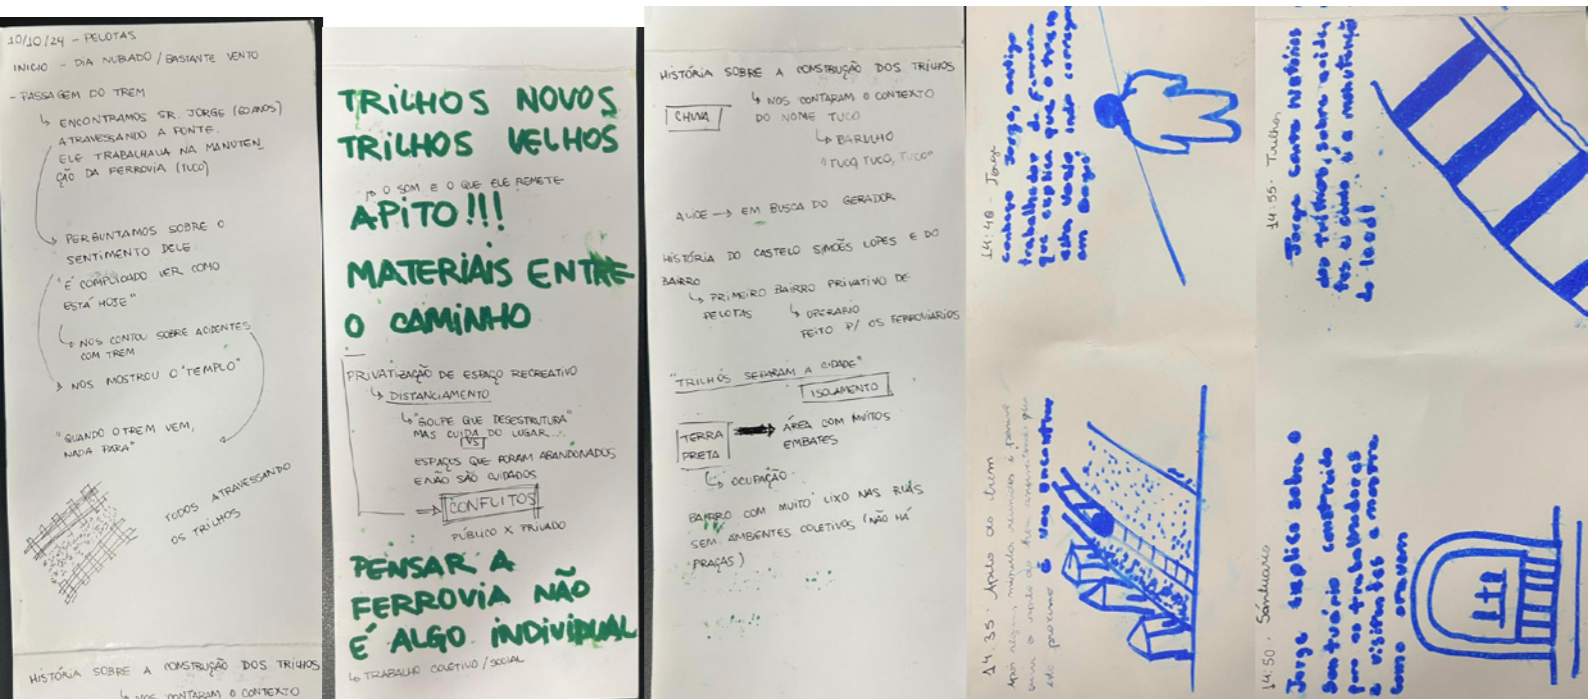 10/10/24 - PELOTAS
INICIO - DIA NUBLADO / BASTANTE VENTO
- PASSAGEM DO TREM
↳ ENCONTRAMOS SR. JORGE (60 ANOS)
ATRAVESSANDO A PONTE.
ELE TRABALHAVA NA MANUTEN
ÇÃO DA FERROVIA (TUCO)
PERGUNTAMOS SOBRE O
SENTIMENTO DELE:
"É COMPLICADO VER COMO
ESTÁ HOJE"
↳ NOS CONTOU SOBRE ACIDENTES
COM TREM
NOS MOSTROU O "TEMPLO"
"QUANDO O TREM VEM,
NADA PARA"
TODOS ATRAVESSANDO
OS TRILHOS
HISTÓRIA SOBRE A CONSTRUÇÃO DOS TRILHOS
↳ NOS CONTARAM O CONTEXTO
TRILHOS NOVOS
TRILHOS VELHOS
O SOM E O QUE ELE REMETE
APITO!!!
MATERIAIS ENTRE
O CAMINHO
PRIVATIZAÇÃO DE ESPAÇO RECREATIVO
↳ DISTANCIAMENTO
↳ "GOLPE QUE DESESTRUTURA"
MAS CUIDA DO LUGAR...
VS
ESPAÇOS QUE FORAM ABANDONADOS
E NÃO SÃO CUIDADOS
⇒ CONFLITOS
PÚBLICO X PRIVADO
PENSAR A
FERROVIA NÃO
É ALGO INDIVIDUAL
↳ TRABALHO COLETIVO / SOCIAL
HISTÓRIA SOBRE A CONSTRUÇÃO DOS TRILHOS
CHUVA
↳ NOS CONTARAM O CONTEXTO
DO NOME TUCO
↳ BARULHO
"TUCO, TUCO, TUCO"
ALICE → EM BUSCA DO GERADOR
HISTÓRIA DO CASTELO SIMÕES LOPES E DO
BAIRRO
↳ PRIMEIRO BAIRRO PRIVATIVO DE
PELOTAS
↳ OPERÁRIO
FEITO P/ OS FERROVIÁRIOS
"TRILHOS SEPARAM A CIDADE"
ISOLAMENTO
TERRA
PRETA
→ ÁREA COM MUITOS
EMBATES
↳ OCUPAÇÃO
BAIRRO COM MUITO LIXO NAS RUAS
SEM AMBIENTES COLETIVOS (NÃO HÁ
PRAÇAS)
14:40 - Jorge
conheço Jorge, antigo
trabalhador da ferrovia
que explica que o trem
está vazio indo carregar
em
14:55 - Trilhos
Jorge conta histórias
dos trilhos, sobre aciden
tes, e como é a manutenção
do local
14:35 - Apito do trem
Após alguns minutos reunidos é possível
ouvir o apito do trem anunciando que
está próximo E vou encontrar
14:50 - Santuário
Jorge explica sobre o
Santuário construído
para os trabalhadores
e visitantes e mostra
como oravam